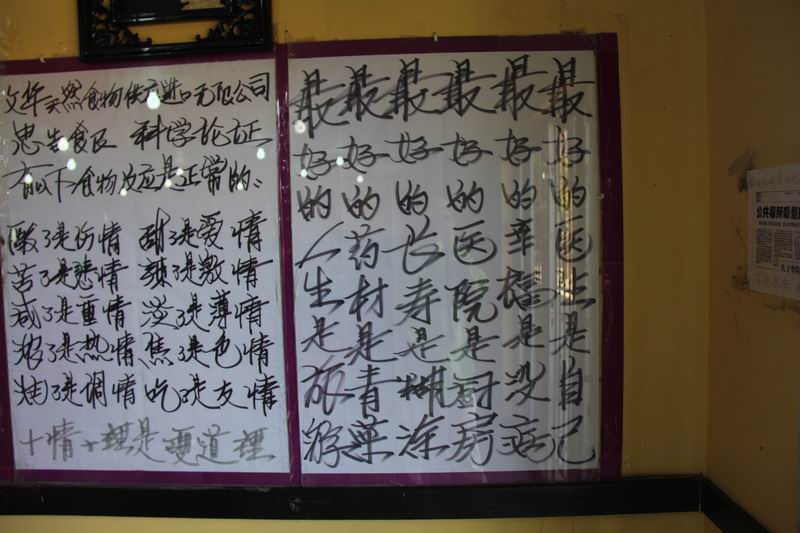 文华天然食物供应进口无限公司
忠告食民 科学论证
有以下食物反应是正常的:
酸了是伤情 甜了是爱情
苦了是悲情 辣了是激情
咸了是重情 淡了是薄情
浓了是热情 焦了是色情
糊了是调情 吃了是友情
十情十理是硬道理
最好的医生是自己
最好的幸福是没病
最好的医院是厨房
最好的长寿是糊涂
最好的药材是青菜
最好的人生是旅游